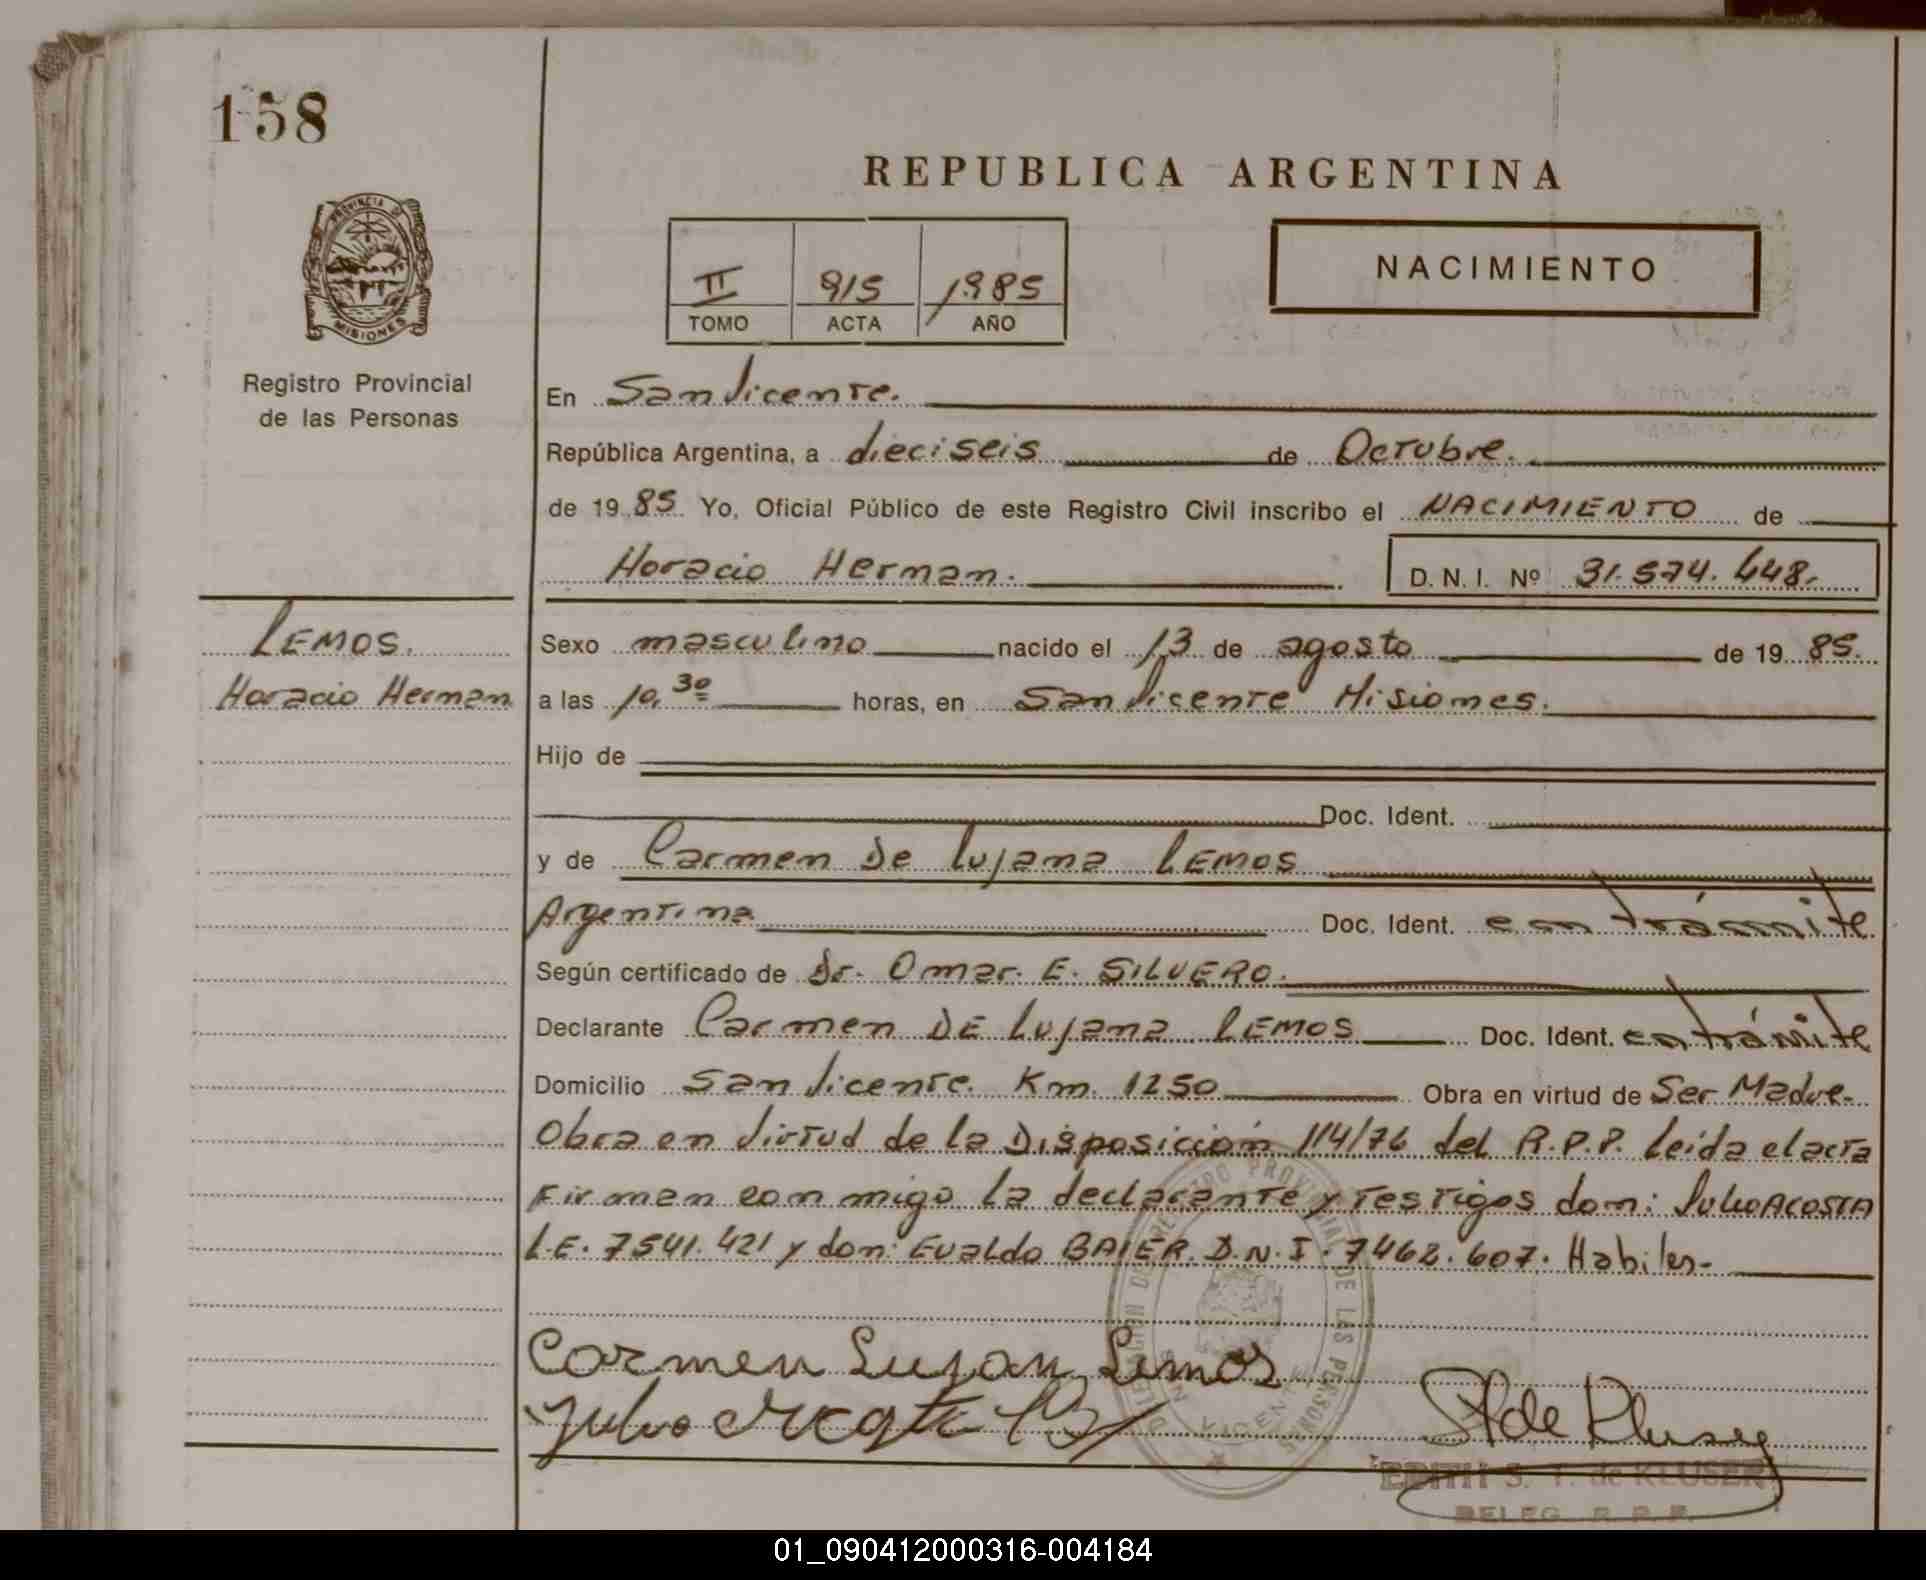 158
REPUBLICA ARGENTINA
PROVINCIA DE
MISIONES
II 915 1985
TOMO ACTA AÑO
NACIMIENTO
Registro Provincial
de las Personas
En San Vicente.
República Argentina, a dieciseis de Octubre.
de 19 85 Yo, Oficial Público de este Registro Civil inscribo el NACIMIENTO de
Horacio Hernan. D. N. I. Nº 31.574.448.
LEMOS.
Horacio Hernan
Sexo masculino nacido el 13 de agosto de 19 85.
a las 10,30 horas, en San Vicente Misiones.
Hijo de
Doc. Ident.
y de Carmen De Lujana LEMOS
Argentina Doc. Ident. en trámite
Según certificado de Dr. Omar. E. SILVERO.
Declarante Carmen DE Lujana LEMOS Doc. Ident. en trámite
Domicilio San Vicente. Km. 1250 Obra en virtud de Ser Madre-
Obra en Virtud de la Disposición 114/76 del R.P.P. Leida el acta
Firman conmigo la declarante y Testigos don: Julio ACOSTA
L.E. 7541.421 y don: Evaldo BAIER. D.N.I. 7462.607. Habiles-
DELEGACION DEL REGISTRO PROVINCIAL DE LAS PERSONAS
Carmen Lujan Lemos
Julio
de Kluser
EDITH S. T. de KLUSER
DELEG. R. P. P.
01_090412000316-004184